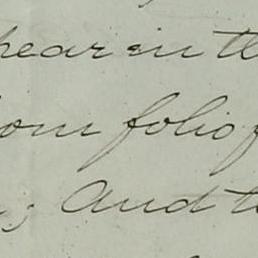 pear in th
om folio f
; And t